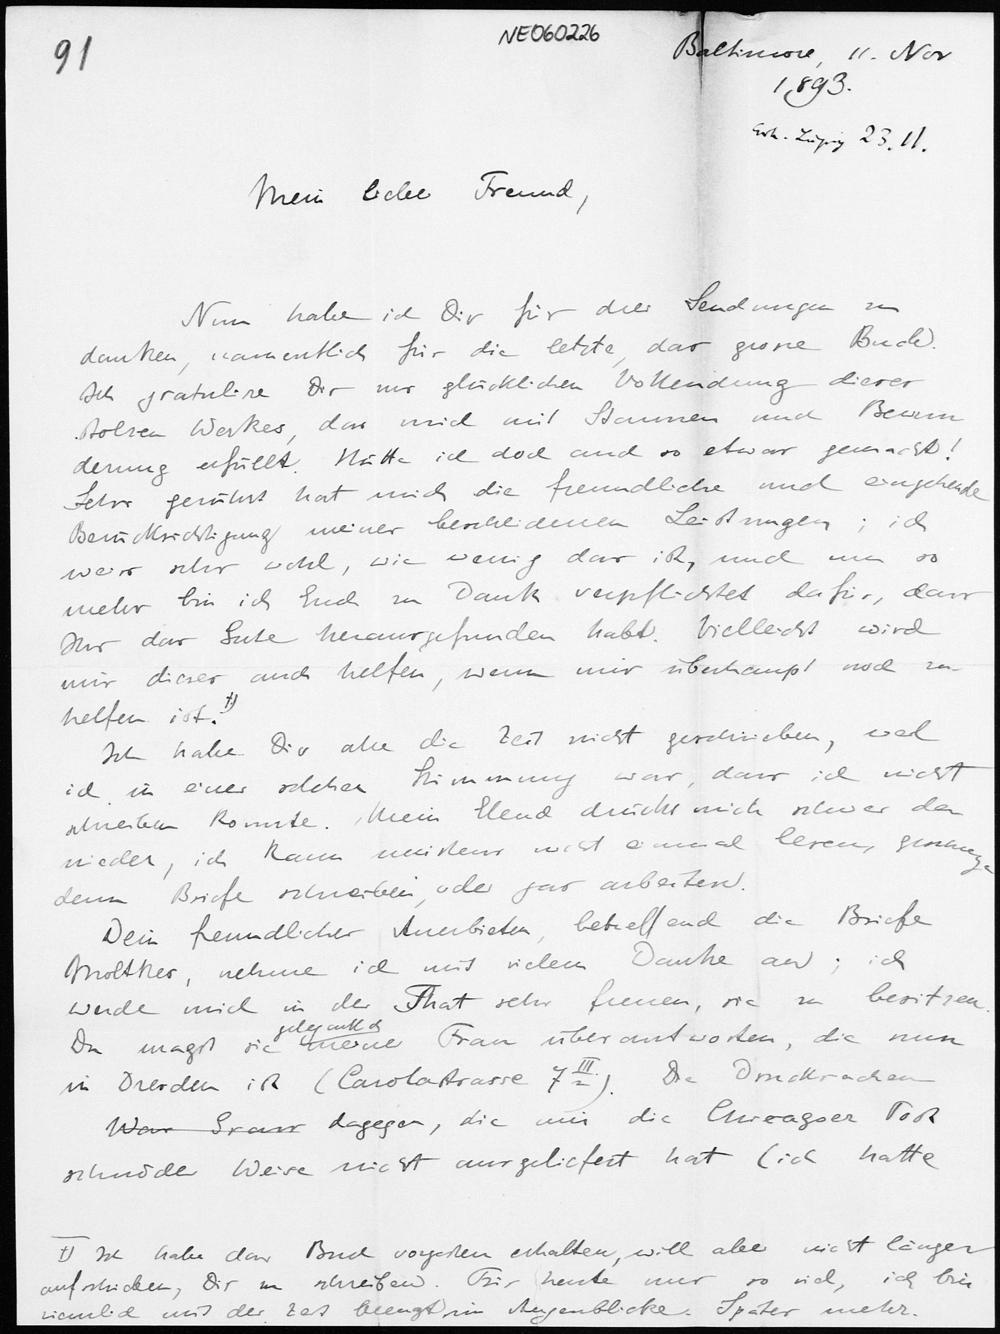 91
NE060226
Baltimore, 11. Nov
1893.
Erh. Leipzig 23.11.
Mein lieber Freund,
Nun habe ich Dir für drei Sendungen zu
danken, namentlich für die letzte, das grosse Buch.
Ich gratulire Dir zur glücklichen Vollendung dieses
stolzen Werkes, das mich mit Staunen und Bewun
derung erfüllt. Hätte ich doch auch so etwas gemacht!
Sehr gerührt hat mich die freundliche und eingehende
Berücksichtigung meiner bescheidenen Leistungen; ich
weiss sehr wohl, wie wenig das ist, und um so
mehr bin ich Euch zu Dank verpflichtet dafür, dass
Ihr das Gute herausgefunden habt. Vielleicht wird
mir dieses auch helfen, wenn mir überhaupt noch zu
helfen ist. †)
Ich habe Dir alle die Zeit nicht geschrieben, weil
ich in einer solchen Stimmung war, dass ich nicht
schreiben konnte. Mein Elend drückt mich schwer dar
nieder, ich kann meistens nicht einmal lesen, geschweige
denn Briefe schreiben, oder gar arbeiten.
Dein freundliches Anerbieten, betreffend die Briefe
Moltkes, nehme ich mit vielem Danke an; ich
werde mich in der That sehr freuen, sie zu besitzen.
Du magst sie gelegentlich meiner Frau überantworten, die nun
in Dresden ist (Carolastrasse 7 III). Die Drucksachen
dagegen, die mir die Chicagoer Post
schnöder Weise nicht ausgeliefert hat (ich hatte
†) Ich habe das Buch vorgestern erhalten, will aber nicht länger
aufschieben, Dir zu schreiben. Für heute nur so viel, ich bin
ziemlich mit der Zeit beengt im Augenblicke. Später mehr.